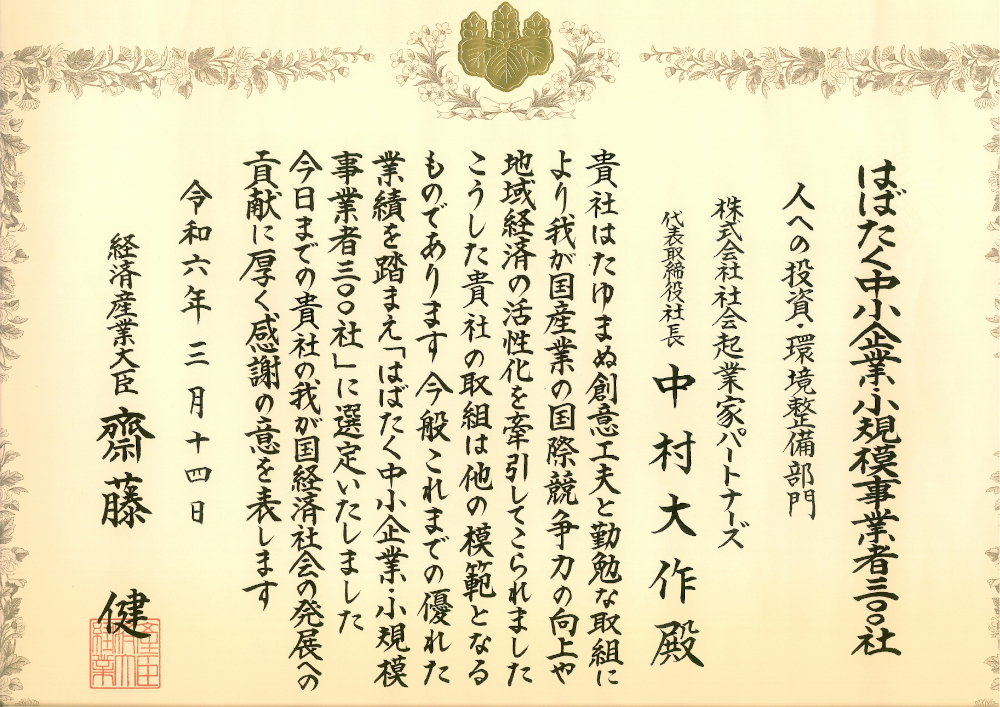 はばたく中小企業・小規模事業者三〇〇社
人への投資・環境整備部門
株式会社社会起業家パートナーズ
代表取締役社長 中村大作殿
貴社はたゆまぬ創意工夫と勤勉な取組に
より我が国産業の国際競争力の向上や
地域経済の活性化を牽引してこられました
こうした貴社の取組は他の模範となる
ものであります 今般これまでの優れた
業績を踏まえ「はばたく中小企業・小規模
事業者三〇〇社」に選定いたしました
今日までの貴社の我が国経済社会の発展への
貢献に厚く感謝の意を表します
令和六年三月十四日
経済産業大臣 齋藤健